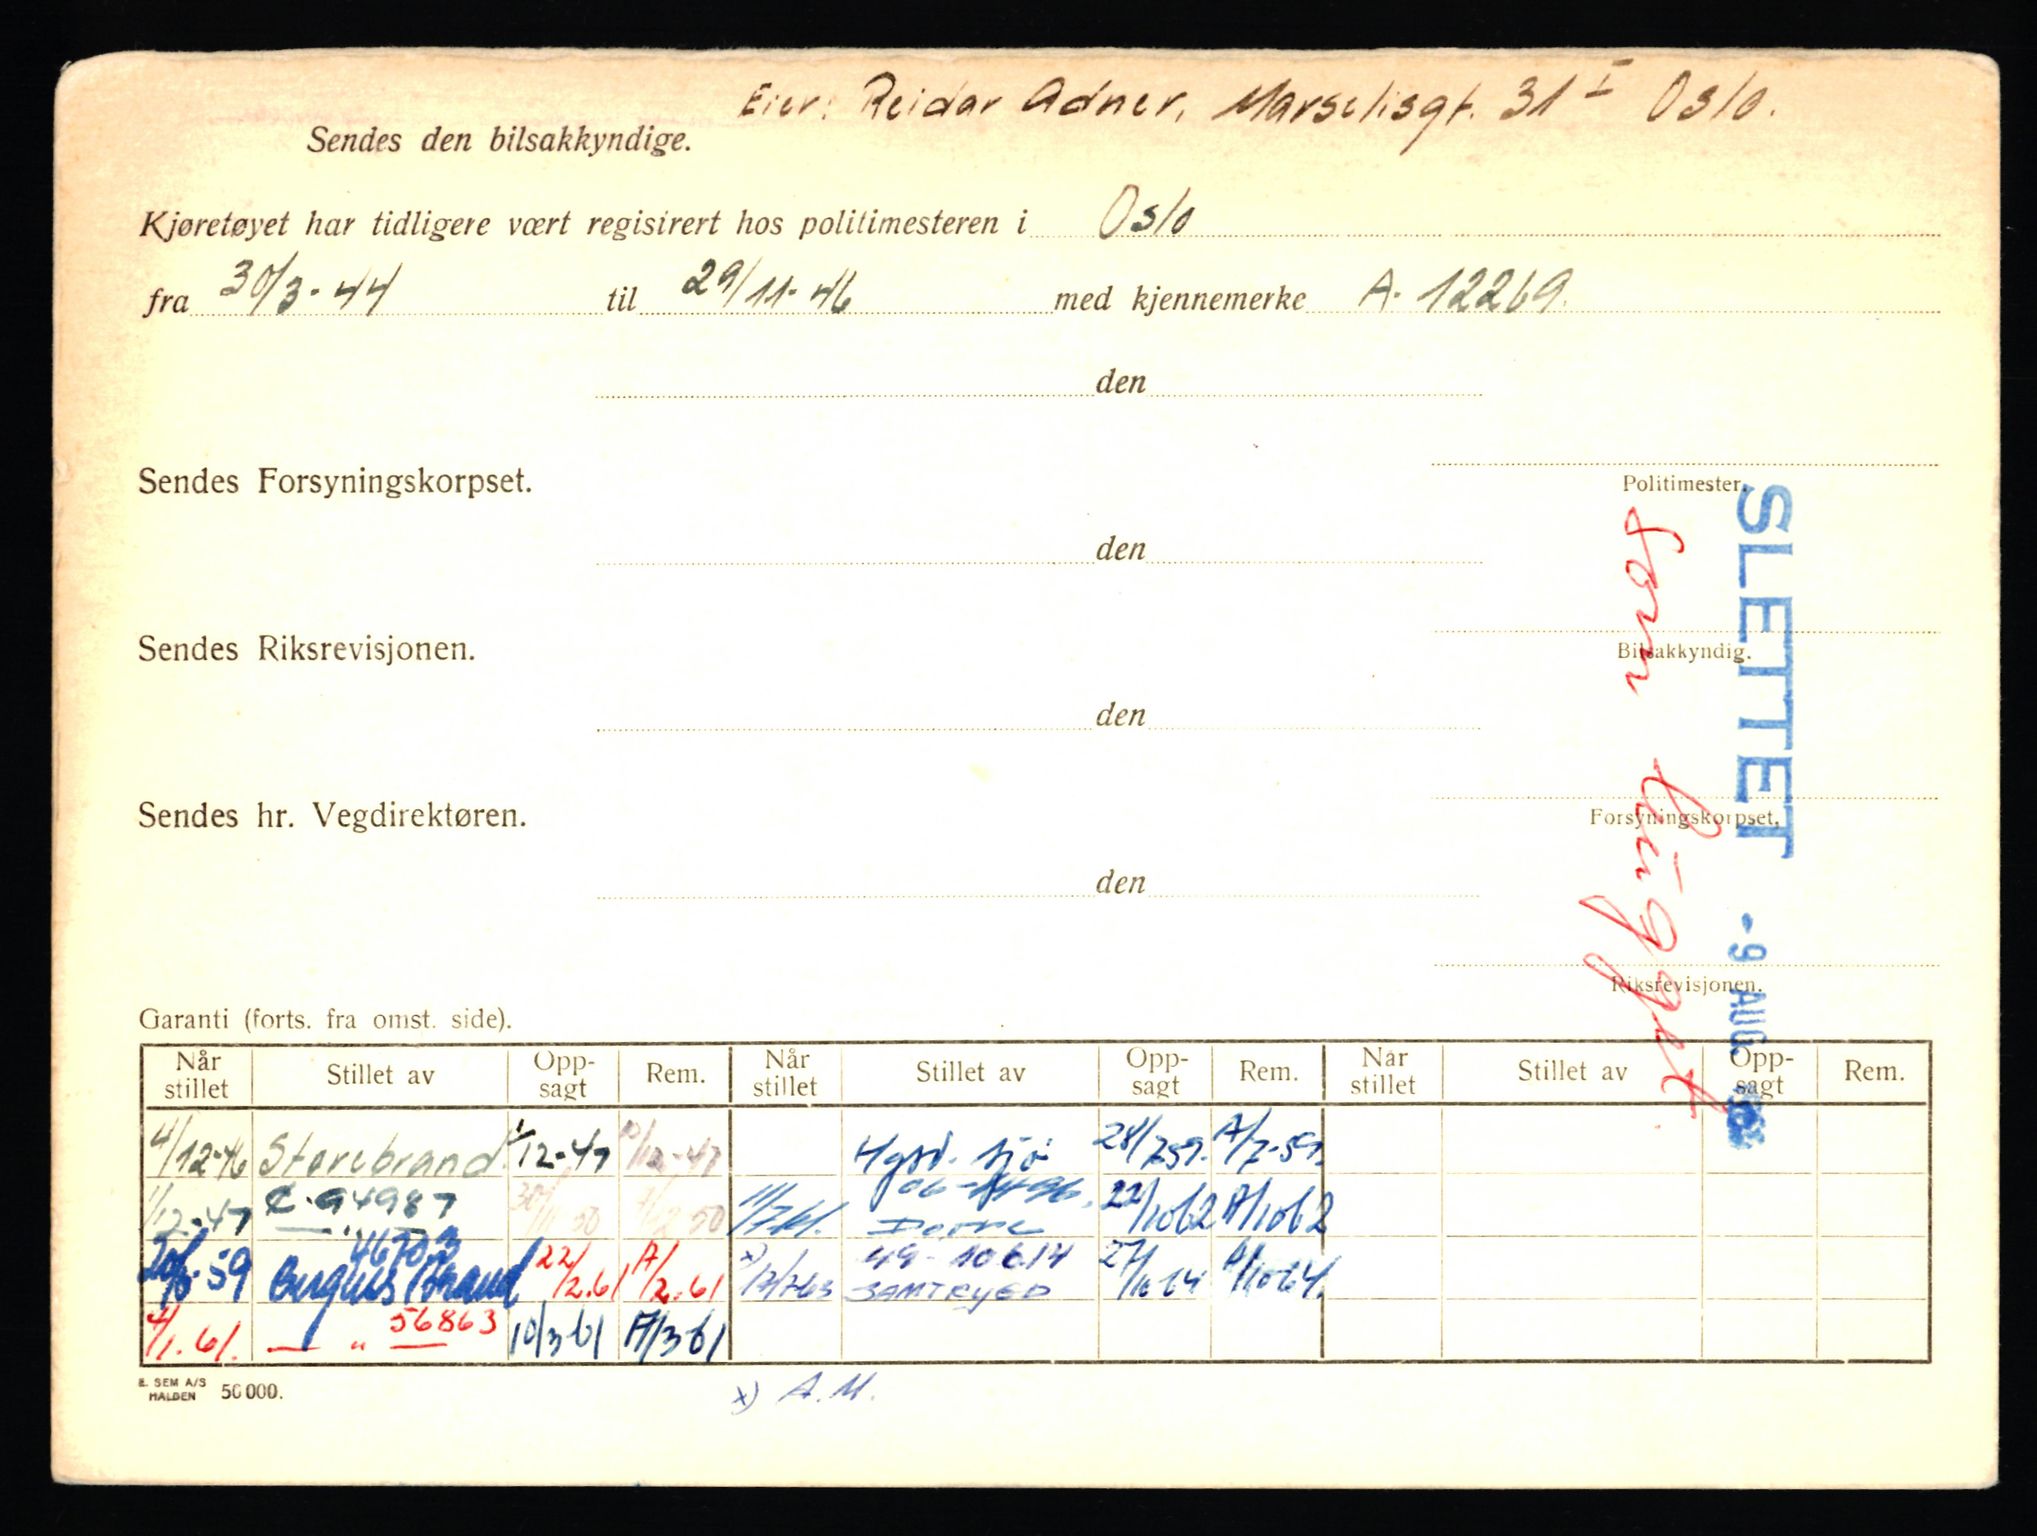 Eier: Reidar Adner, Marselisgt. 31 I Oslo.
Sendes den bilsakkyndige.
Kjøretøyet har tidligere vært registrert hos politimesteren i Oslo
fra 30/3-44 til 29/11-46 med kjennemerke A-12269.
den
Politimester.
Sendes Forsyningskorpset.
den
Bilsakkyndig.
Sendes Riksrevisjonen.
den
Forsyningskorpset.
Sendes hr. Vegdirektøren.
den
Riksrevisjonen.
SLETTET
-9 AUG.
Som hugget
Garanti (forts. fra omst. side).
Når stillet Stillet av Opp-sagt Rem. Når stillet Stillet av Opp-sagt Rem. Når stillet Stillet av Opp-sagt Rem.
4/12-46 Storebrand 1/12-47 10/12-47 28/7-59. A/7-59.
1/12-47 94987 11/7-61. 22/1062 A/1062
-59 46703 Brand 22/2.61 A/2.61 x) 17/7-63 49-10614 SAMTRYGD 27/1064 A/1064.
4/1.61. — " — 56863 10/3 61 A/3 61
E. SEM A/S
HALDEN 50 000.
x) A.M.